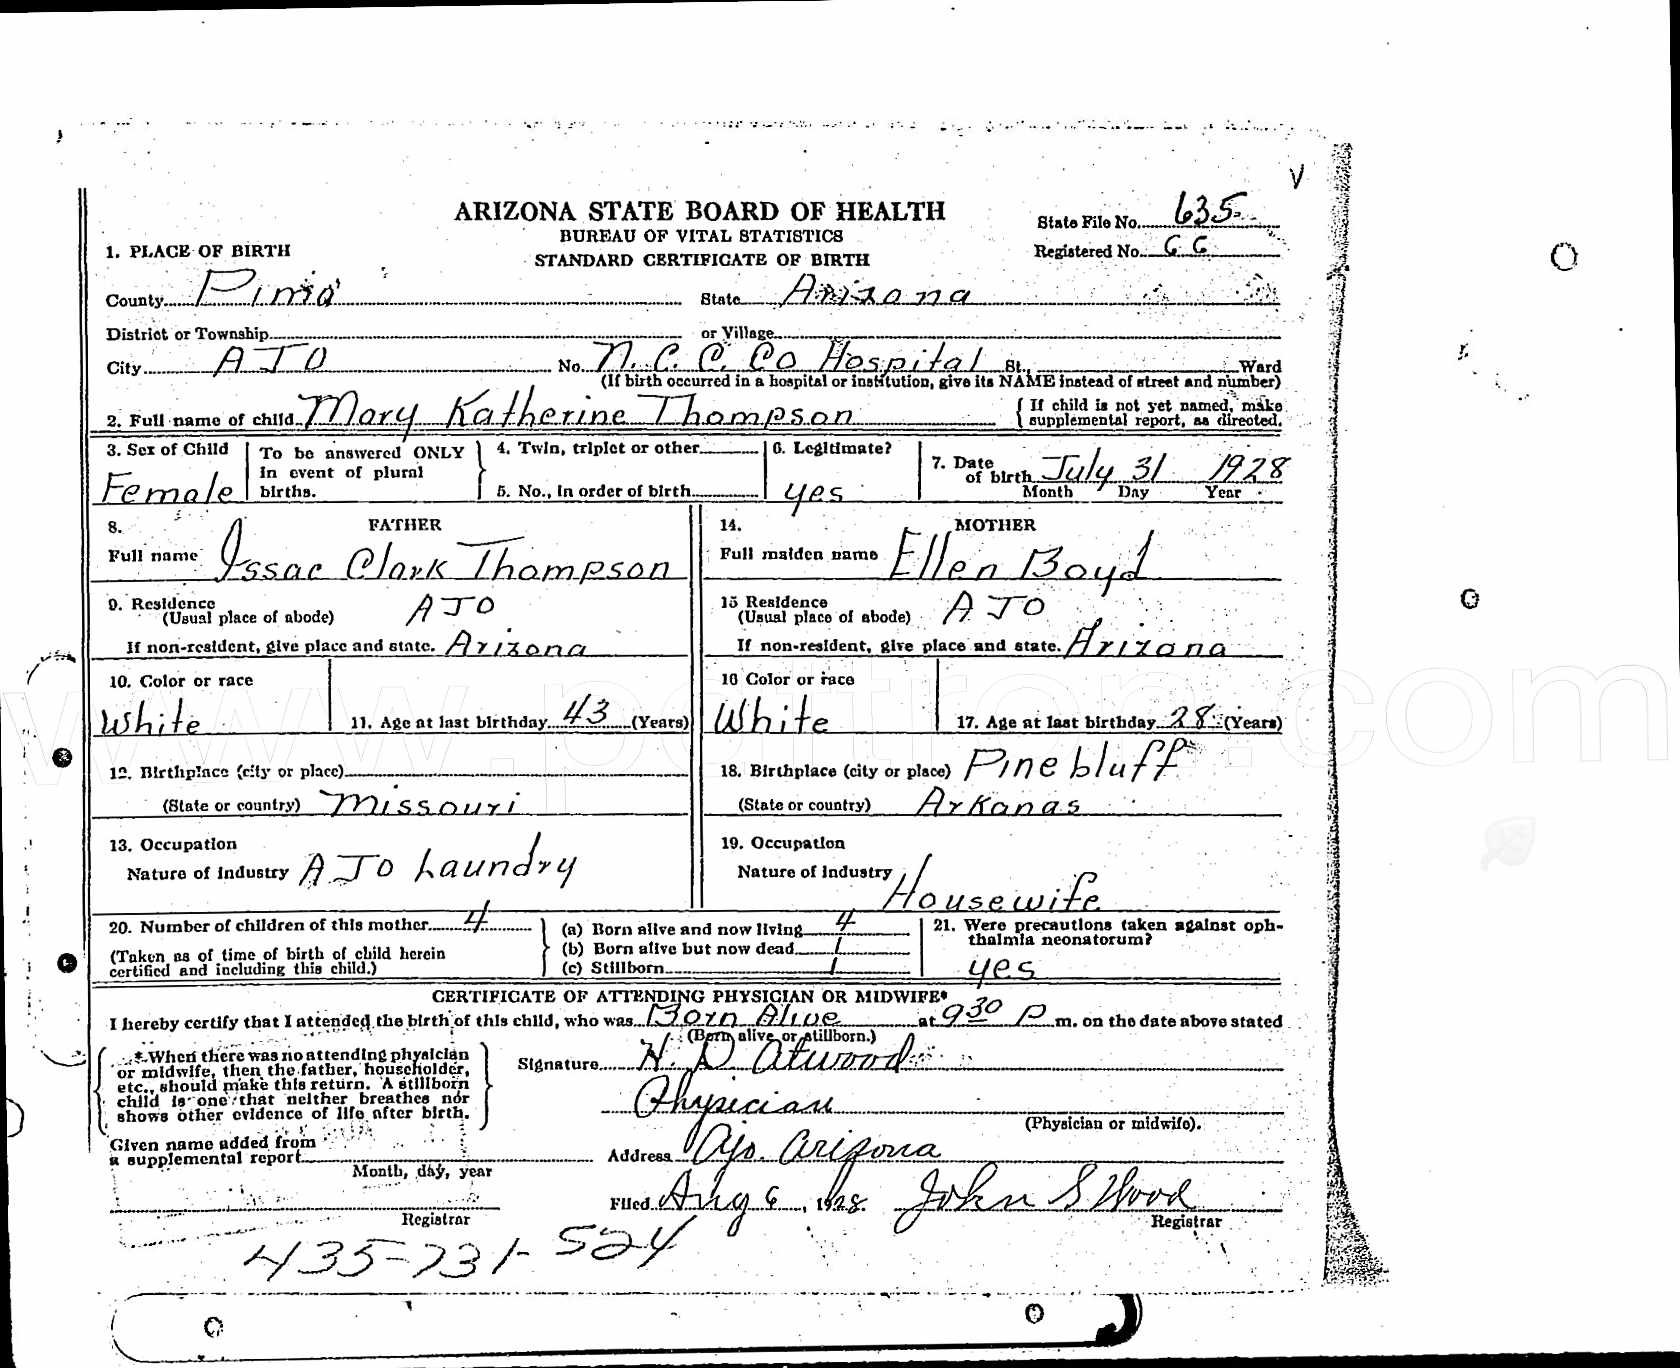 V
ARIZONA STATE BOARD OF HEALTH
State File No. 635
BUREAU OF VITAL STATISTICS
1. PLACE OF BIRTH
STANDARD CERTIFICATE OF BIRTH
Registered No. 66
County Pima State Arizona
District or Township or Village
City AJO No. N. C. C. Co Hospital St., Ward
(If birth occurred in a hospital or institution, give its NAME instead of street and number)
2. Full name of child Mary Katherine Thompson { If child is not yet named, make
supplemental report, as directed.
3. Sex of Child Female
To be answered ONLY
in event of plural
births.
4. Twin, triplet or other
5. No., in order of birth
6. Legitimate? yes
7. Date
of birth July 31 1928
Month Day Year
8. FATHER
Full name Issac Clark Thompson
9. Residence AJO
(Usual place of abode)
If non-resident, give place and state. Arizona
10. Color or race White
11. Age at last birthday 43 (Years)
12. Birthplace (city or place)
(State or country) Missouri
13. Occupation
Nature of Industry AJO Laundry
14. MOTHER
Full maiden name Ellen Boyd
15 Residence AJO
(Usual place of abode)
If non-resident, give place and state. Arizona
16 Color or race White
17. Age at last birthday 28 (Years)
18. Birthplace (city or place) Pine bluff
(State or country) Arkanas
19. Occupation
Nature of Industry Housewife
20. Number of children of this mother 4
(Taken as of time of birth of child herein
certified and including this child.)
(a) Born alive and now living 4
(b) Born alive but now dead 1
(c) Stillborn 1
21. Were precautions taken against oph-
thalmia neonatorum?
yes
CERTIFICATE OF ATTENDING PHYSICIAN OR MIDWIFE*
I hereby certify that I attended the birth of this child, who was Born Alive at 9 30 P m. on the date above stated
(Born alive or stillborn.)
* When there was no attending physician
or midwife, then the father, householder,
etc., should make this return. A stillborn
child is one that neither breathes nor
shows other evidence of life after birth.
Signature H. D. Atwood
Physician
(Physician or midwife).
Given name added from
a supplemental report
Month, day, year
Address Ajo. Arizona
Filed Aug 6, 1928. John S Wood
Registrar Registrar
435-731-524
www.petitron.com